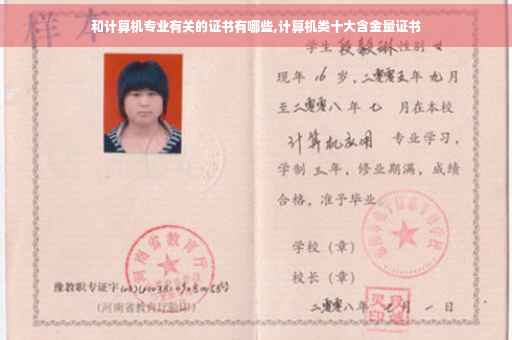 样本
和计算机专业有关的证书有哪些,计算机类十大含金量证书
学生 段毅琳 性别 女
现年 16 岁，二零零五年 九月
至二零零八年 七 月在本校
计算机应用 专业学习，
学制 三年，修业期满，成绩
合格，准予毕业
学校（章）
校长（章）
二零零八年 七月 一日
河南省教育厅
豫教职专证字
（河南省教育厅验印）